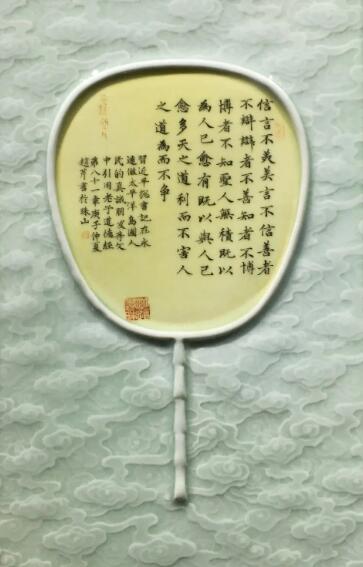 信言不美美言不信善者
不辯辯者不善知者不博
博者不知聖人無積既以
為人己愈有既以與人己
愈多天之道利而不害人
之道為而不爭
習近平總書記在永
遠做太平洋島國人
民的真誠朋友等文
中引用老子道德經
第八十一章庚子仲夏
趙芹書於珠山